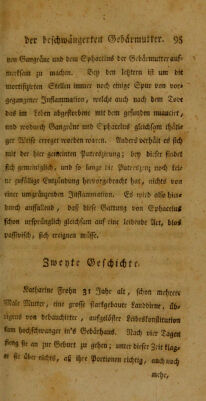 der beschwängerten Gebärmutter. 95
von Gangräne und dem Sphacelus der Gebärmutter auf-
merksam zu machen. Bey den letztern ist um die
mortifizirten Stellen immer noch einige Spur von vor-
gegangener Inflammation, welche auch nach dem Tode
das im Leben abgestorbene mit dem gesunden
und wodurch Gangräne und Sphacelus gleichsam thätli-
ger Weise erreget worden waren. Anders verhält es sich
mit der hier gemeinten Putreszirung; bey dieser findet
sich gemeiniglich, und so lange die Putreszenz noch kei-
ne zufällige Entzündung hervorgebracht hat, nichts von
einer umgränzenden Inflammation. Es wird also hie-
durch auffallend, daß diese Gattung von Sphacelus
schon ursprünglich gleichsam auf eine leidende Art, blos
passivisch, sich ereignen müsse.
Zweyte Geschichte.
Katharine Frohn 31 Jahr alt, schon mehrere
Male Mutter, eine grosse starkgebaute Landdirne, üb-
rigens von debauchirter, aufgelöster Leibeskonstitution
kam hochschwanger in's Gebärhaus. Nach vier Tagen
fieng sie an zur Geburt zu gehen; unter dieser Zeit klag-
te sie über nichts, aß ihre Portionen richtig, auch noch
mehr,